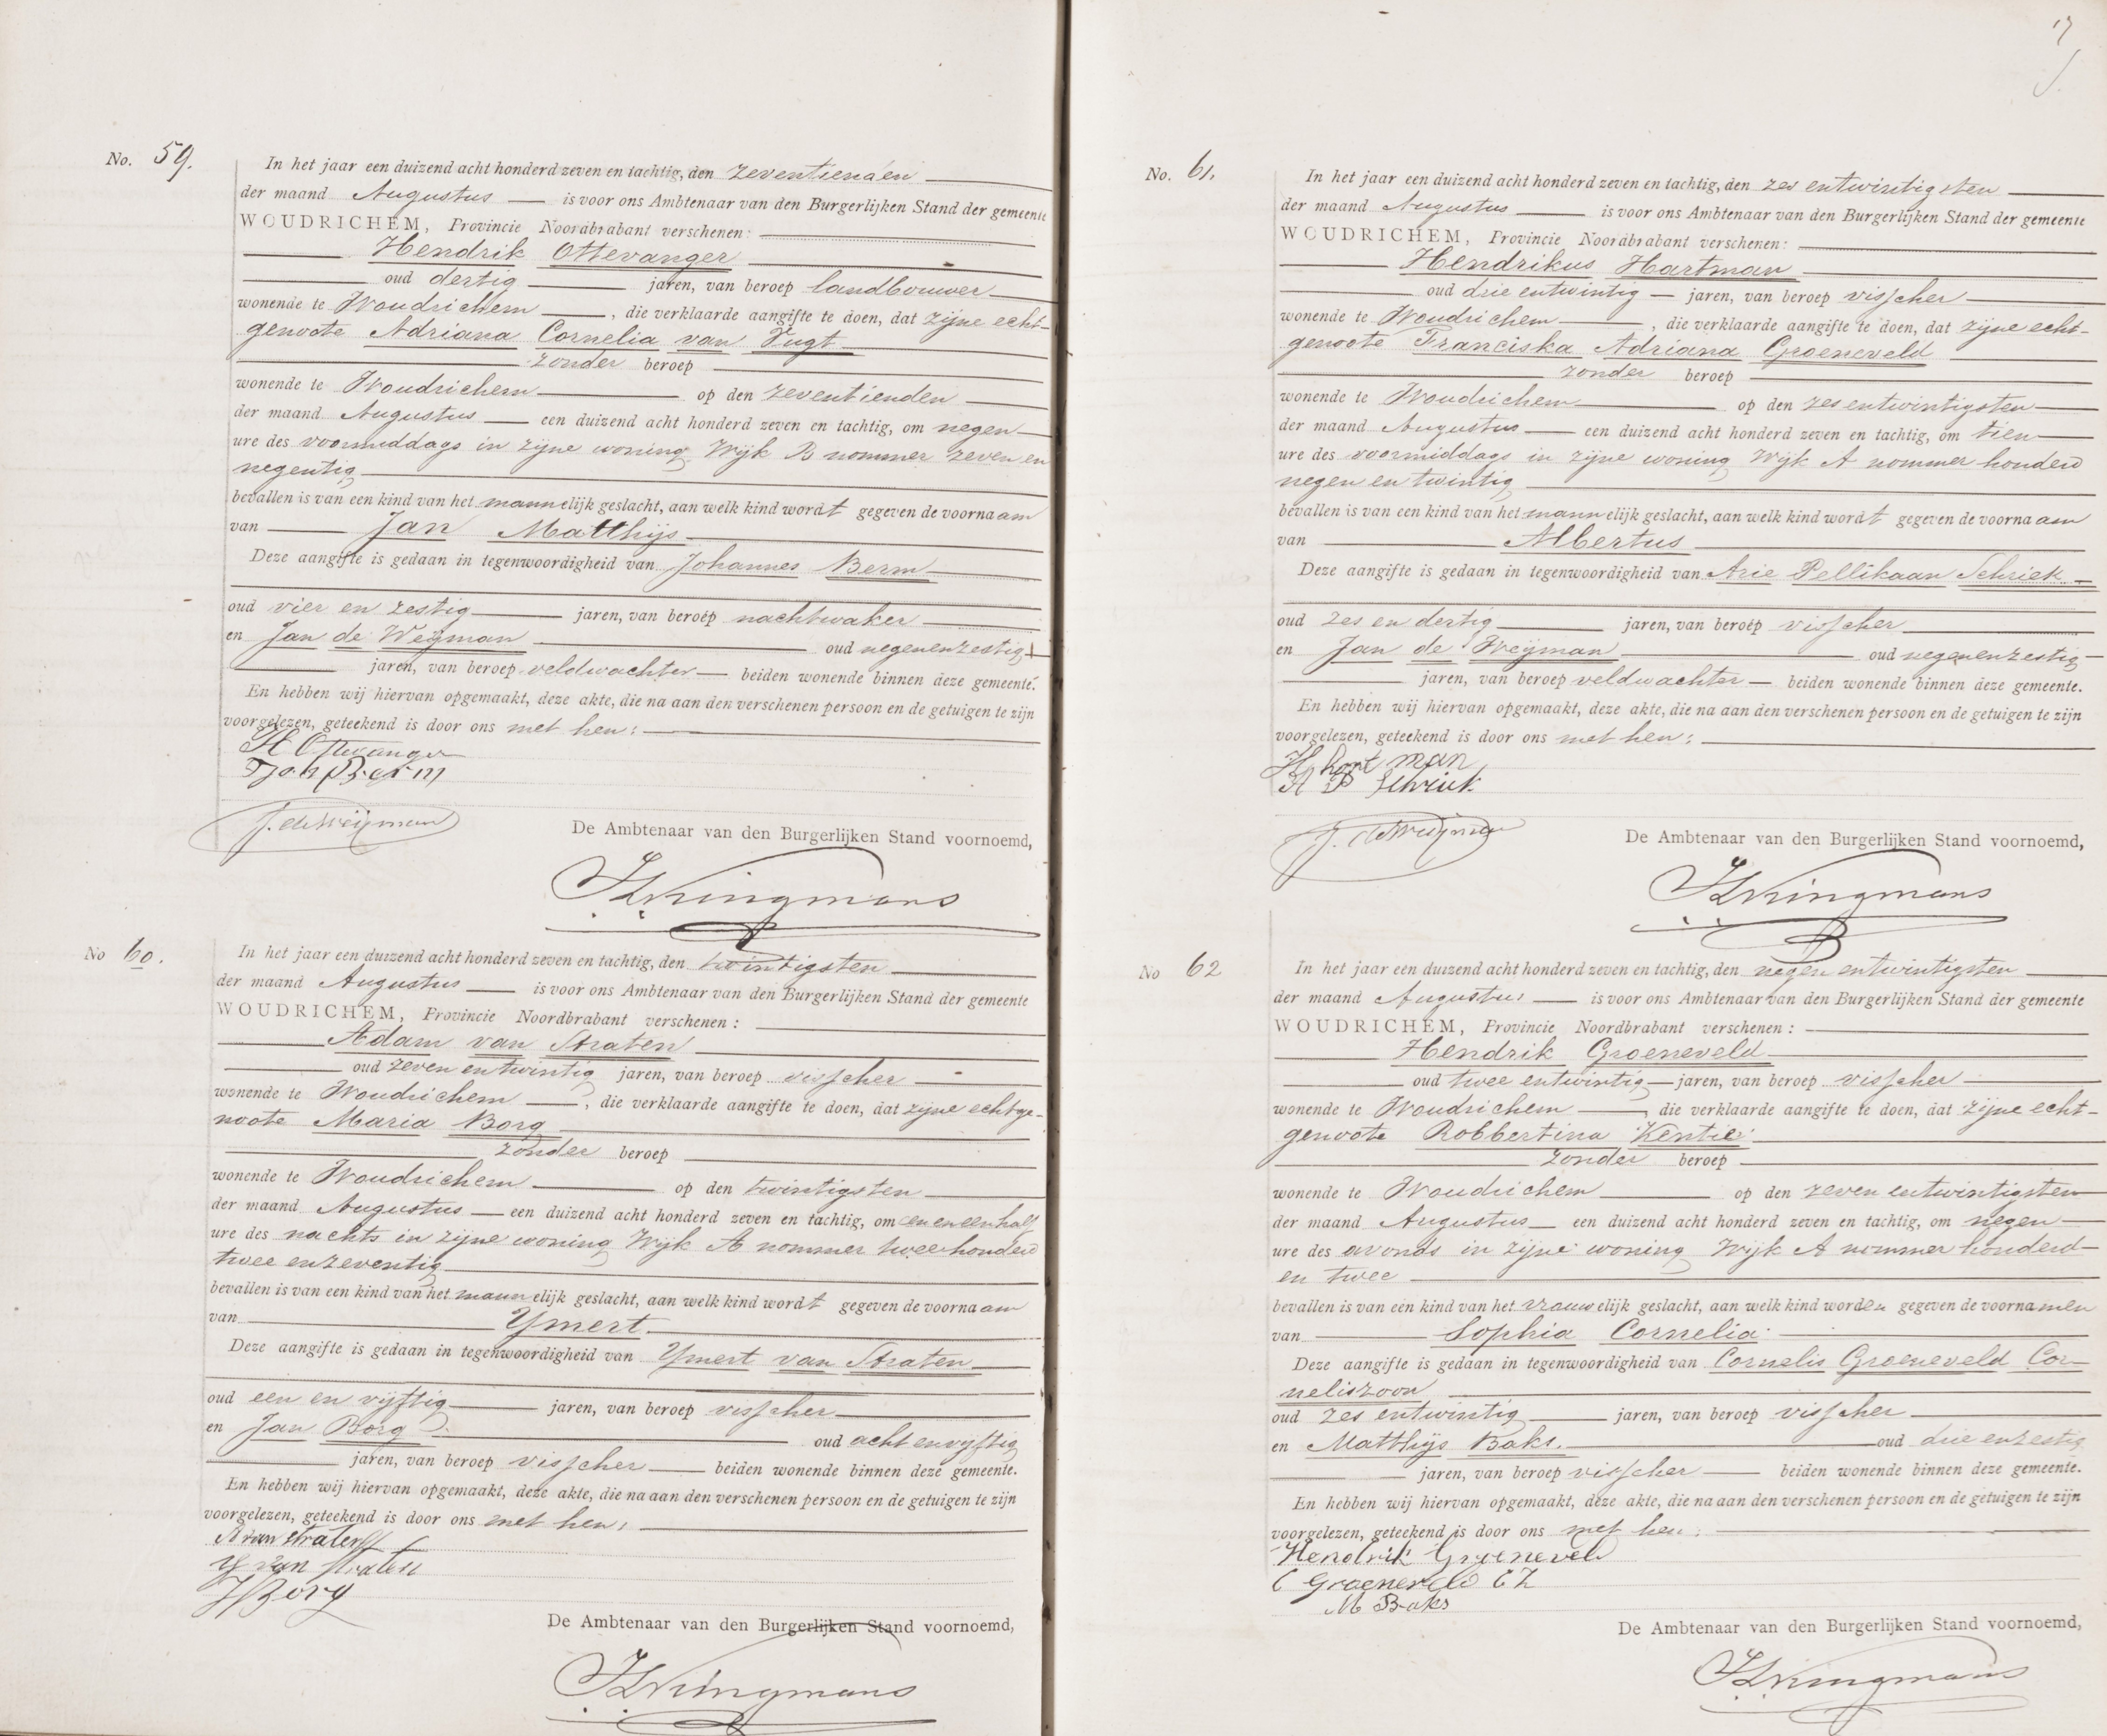 No. 59.
In het jaar een duizend acht honderd zeven en tachtig, den zeventienden
der maand Augustus is voor ons Ambtenaar van den Burgerlijken Stand der gemeente
WOUDRICHEM, Provincie Noordbrabant verschenen:
Hendrik Ottevanger
oud dertig jaren, van beroep landbouwer
wonende te Woudrichem, die verklaarde aangifte te doen, dat zijne echt-
genoote Adriana Cornelia van Vugt
zonder beroep
wonende te Woudrichem op den zeventienden
der maand Augustus een duizend acht honderd zeven en tachtig, om negen
ure des voormiddags in zijne woning Wijk B nommer zeven en
negentig
bevallen is van een kind van het mannelijk geslacht, aan welk kind wordt gegeven de voornaam
van Jan Matthijs
Deze aangifte is gedaan in tegenwoordigheid van Johannes Berm
oud vier en zestig jaren, van beroep nachtwaker
en Jan de Weijman oud negenenzestig
jaren, van beroep veldwachter beiden wonende binnen deze gemeente.
En hebben wij hiervan opgemaakt, deze akte, die na aan den verschenen persoon en de getuigen te zijn
voorgelezen, geteekend is door ons met hen:
H Ottevanger
Joh Berm
J. de Weijman
De Ambtenaar van den Burgerlijken Stand voornoemd,
No 60.
In het jaar een duizend acht honderd zeven en tachtig, den twintigsten
der maand Augustus is voor ons Ambtenaar van den Burgerlijken Stand der gemeente
WOUDRICHEM, Provincie Noordbrabant verschenen:
Adam van Straten
oud zeven en twintig jaren, van beroep visscher
wonende te Woudrichem, die verklaarde aangifte te doen, dat zijne echtge-
noote Maria Borg
zonder beroep
wonende te Woudrichem op den twintigsten
der maand Augustus een duizend acht honderd zeven en tachtig, om een en een half
ure des nachts in zijne woning Wijk A nommer tweehonderd
twee en zeventig
bevallen is van een kind van het mannelijk geslacht, aan welk kind wordt gegeven de voornaam
van Ymert
Deze aangifte is gedaan in tegenwoordigheid van Ymert van Straten
oud een en vijftig jaren, van beroep visscher
en Jan Borg oud acht en vijftig
jaren, van beroep visscher beiden wonende binnen deze gemeente.
En hebben wij hiervan opgemaakt, deze akte, die na aan den verschenen persoon en de getuigen te zijn
voorgelezen, geteekend is door ons met hen:
A van Straten
Y van Straten
J Borg
De Ambtenaar van den Burgerlijken Stand voornoemd,
17
No. 61.
In het jaar een duizend acht honderd zeven en tachtig, den zes entwintigsten
der maand Augustus is voor ons Ambtenaar van den Burgerlijken Stand der gemeente
WOUDRICHEM, Provincie Noordbrabant verschenen:
Hendrikus Hartman
oud drie entwintig jaren, van beroep visscher
wonende te Woudrichem, die verklaarde aangifte te doen, dat zijne echt-
genoote Franciska Adriana Groeneveld
zonder beroep
wonende te Woudrichem op den zes entwintigsten
der maand Augustus een duizend acht honderd zeven en tachtig, om tien
ure des voormiddags in zijne woning Wijk A nommer honderd
negen en twintig
bevallen is van een kind van het mannelijk geslacht, aan welk kind wordt gegeven de voornaam
van Albertus
Deze aangifte is gedaan in tegenwoordigheid van Arie Pellikaan Schriek
oud zes en dertig jaren, van beroep visscher
en Jan de Weijman oud negenenzestig
jaren, van beroep veldwachter beiden wonende binnen deze gemeente.
En hebben wij hiervan opgemaakt, deze akte, die na aan den verschenen persoon en de getuigen te zijn
voorgelezen, geteekend is door ons met hen:
H hartman
A P Schriek
J. de Weijman
De Ambtenaar van den Burgerlijken Stand voornoemd,
No 62
In het jaar een duizend acht honderd zeven en tachtig, den negen entwintigsten
der maand Augustus is voor ons Ambtenaar van den Burgerlijken Stand der gemeente
WOUDRICHEM, Provincie Noordbrabant verschenen:
Hendrik Groeneveld
oud twee entwintig jaren, van beroep visscher
wonende te Woudrichem, die verklaarde aangifte te doen, dat zijne echt-
genoote Robbertina Kentie
zonder beroep
wonende te Woudrichem op den zeven entwintigsten
der maand Augustus een duizend acht honderd zeven en tachtig, om negen
ure des avonds in zijne woning Wijk A nommer honderd-
en twee
bevallen is van een kind van het vrouwelijk geslacht, aan welk kind worden gegeven de voornamen
van Sophia Cornelia
Deze aangifte is gedaan in tegenwoordigheid van Cornelis Groeneveld Cor-
neliszoon
oud zes entwintig jaren, van beroep visscher
en Matthijs Baks. oud drie enzestig
jaren, van beroep visscher beiden wonende binnen deze gemeente.
En hebben wij hiervan opgemaakt, deze akte, die na aan den verschenen persoon en de getuigen te zijn
voorgelezen, geteekend is door ons met hen:
Hendrik Groeneveld
C Groeneveld CZ
M Baks
De Ambtenaar van den Burgerlijken Stand voornoemd,